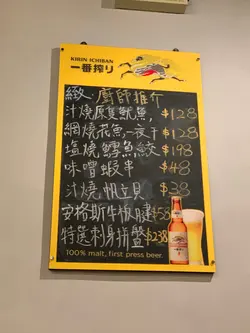 KIRIN ICHIBAN
一番搾り
緻 廚師推介
汁燒原隻魷魚 $128
網燒花魚一夜干 $128
塩燒鱈魚鮫 $198
味噌蝦串 $48
汁燒帆立貝 $38
安格斯牛板腱 $58
特選刺身拼盤 $238
100% malt, first press beer.